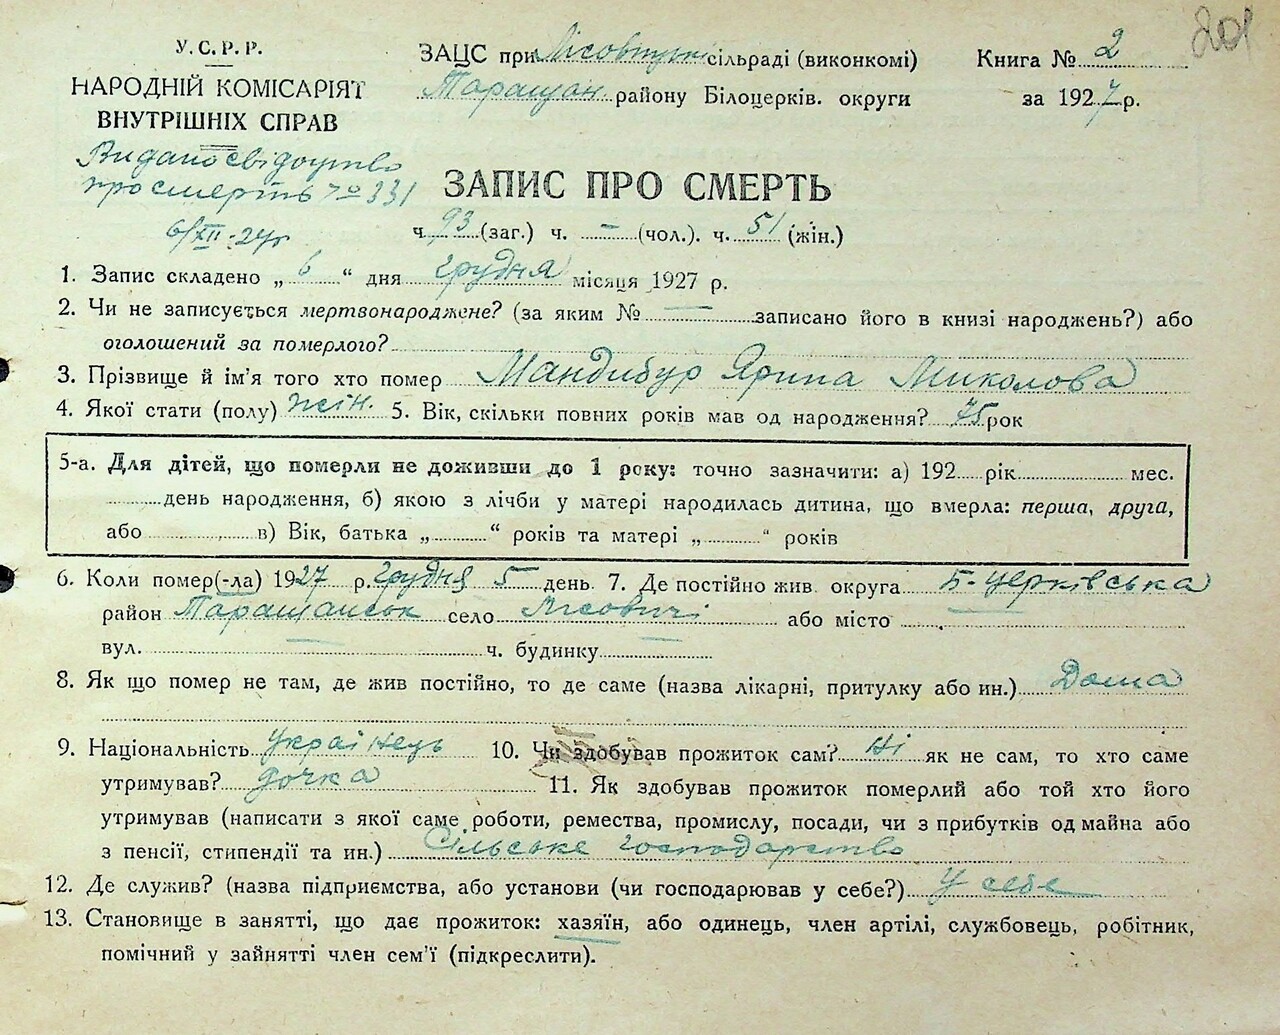 201
У.С.Р.Р.
НАРОДНІЙ КОМІСАРІЯТ
ВНУТРІШНІХ СПРАВ
Видано свідоцтво
про смерть № 331
6/XII-27р
ЗАЦС при сільраді (виконкомі)
Таращан. району Білоцерків. округи
Книга № 2
за 1927 р.
ЗАПИС ПРО СМЕРТЬ
ч. 93 (заг.) ч. – (чол.). ч. 51 (жін.)
1. Запис складено „ 6 “ дня грудня місяця 1927 р.
2. Чи не записується мертвонароджене? (за яким № — записано його в книзі народжень?) або
оголошений за померлого?
3. Прізвище й ім'я того хто помер Мандибур Ярина Миколова
4. Якої стати (полу) жін. 5. Вік, скільки повних років мав од народження? 75 рок
5-а. Для дітей, що померли не доживши до 1 року: точно зазначити: а) 192 рік мес.
день народження, б) якою з лічби у матері народилась дитина, що вмерла: перша, друга,
або в) Вік, батька „ “ років та матері „ “ років
6. Коли помер(-ла) 1927 р. грудня 5 день 7. Де постійно жив округа Б-церківська
район Таращанськ село Лісовичі або місто
вул. ч. будинку
8. Як що помер не там, де жив постійно, то де саме (назва лікарні, притулку або ин.) Дома
9. Національність українець 10. Чи здобував прожиток сам? Ні як не сам, то хто саме
утримував? дочка 11. Як здобував прожиток померлий або той хто його
утримував (написати з якої саме роботи, ремества, промислу, посади, чи з прибутків од майна або
з пенсії, стипендії та ин.) Сільське господарство
12. Де служив? (назва підприємства, або установи (чи господарював у себе?) У себе
13. Становище в занятті, що дає прожиток: хазяїн, або одинець, член артілі, службовець, робітник,
помічний у зайнятті член сем'ї (підкреслити).